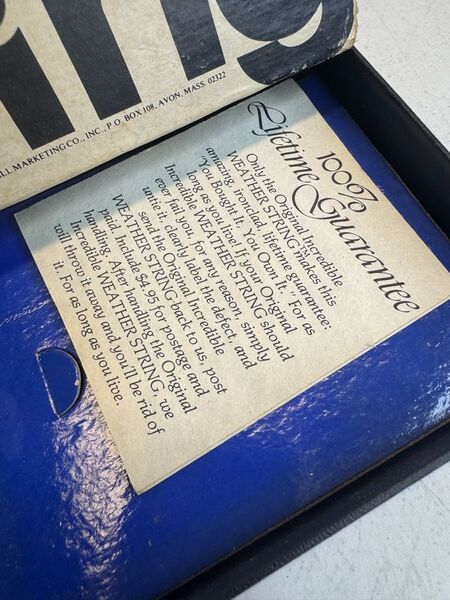 ring
LL MARKETING CO., INC., P.O. BOX 108, AVON, MASS. 02322
100%
Lifetime Guarantee
Only the Original Incredible
WEATHER STRING makes this
amazing, ironclad, lifetime guarantee:
"You Bought It, You Own It." For as
long as you live! If your Original
Incredible WEATHER STRING should
ever fail you, for any reason, simply
write it, clearly label the defect, and
send the Original Incredible
WEATHER STRING back to us, post
paid. Include $4.95 for postage and
handling. After handling the Original
Incredible WEATHER STRING, we
will throw it away and you'll be rid of
it. For as long as you live.